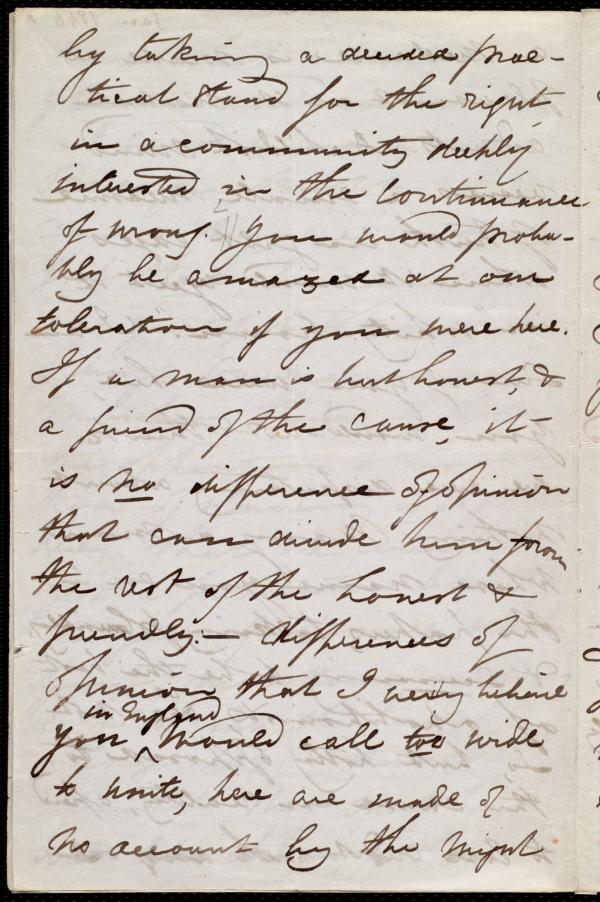 by taking a decided prac-
tical stand for the right,
in a community deeply
interested in the continuance
of wrong. You would proba-
bly be amazed at our
toleration if you were here.
If a man is but honest, &
a friend of the cause, it
is no difference of opinion
that can divide him from
the rest of the honest &
friendly:— differences of
opinion that I verily believe
you in England would call too wide
to unite, here are made of
no account by the might